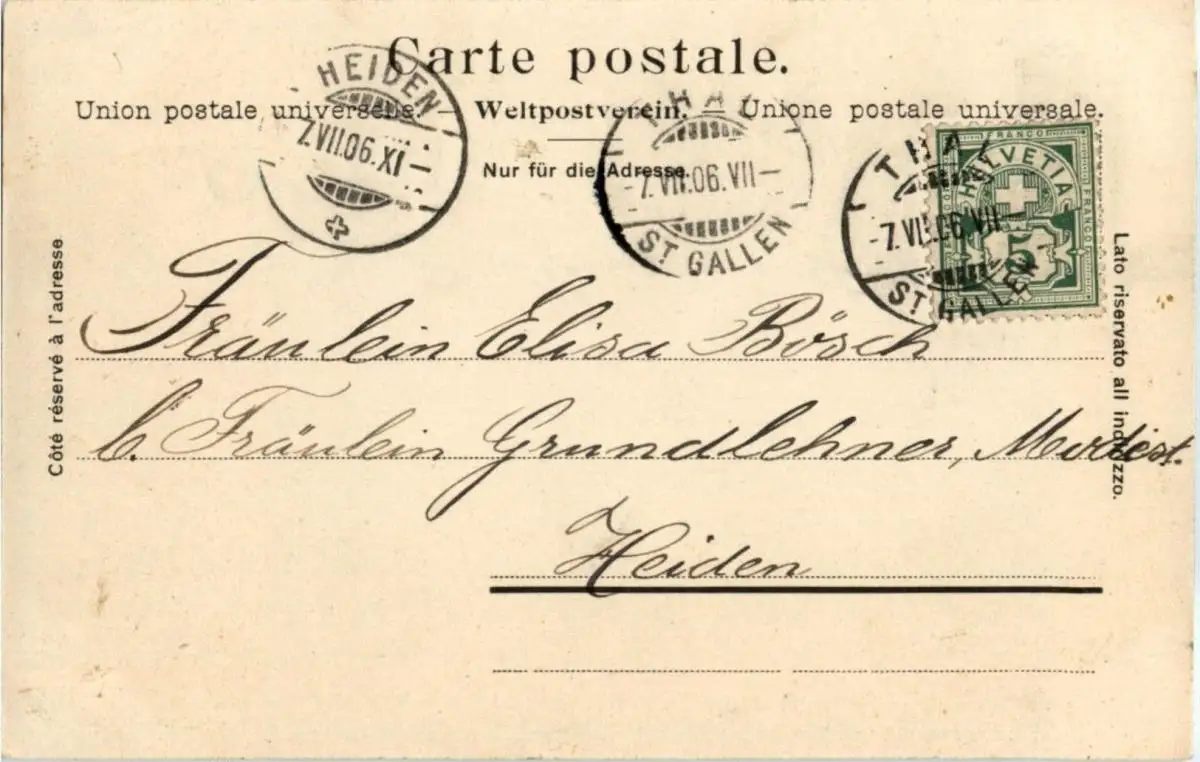 Carte postale.
Union postale universelle. — Weltpostverein. — Unione postale universale.
Nur für die Adresse.
HEIDEN
7.VII.06.XI
THAL
7.VII.06.VII
ST GALLEN
THAL
7.VII.06.VII
ST GALLEN
FRANCO
HELVETIA
FRANCO
5
Côté réservé à l'adresse
Lato riservato all indirizzo.
Fräulein Elisa Bösch
b. Fräulein Grundlehner, Modist.
Heiden